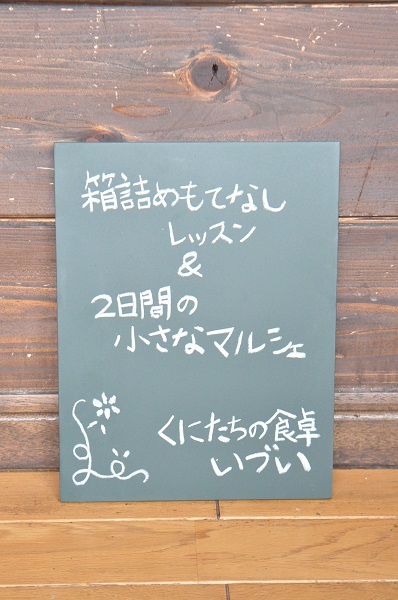 箱詰めもてなし
レッスン
&
2日間の
小さなマルシェ
くにたちの食卓
いづい